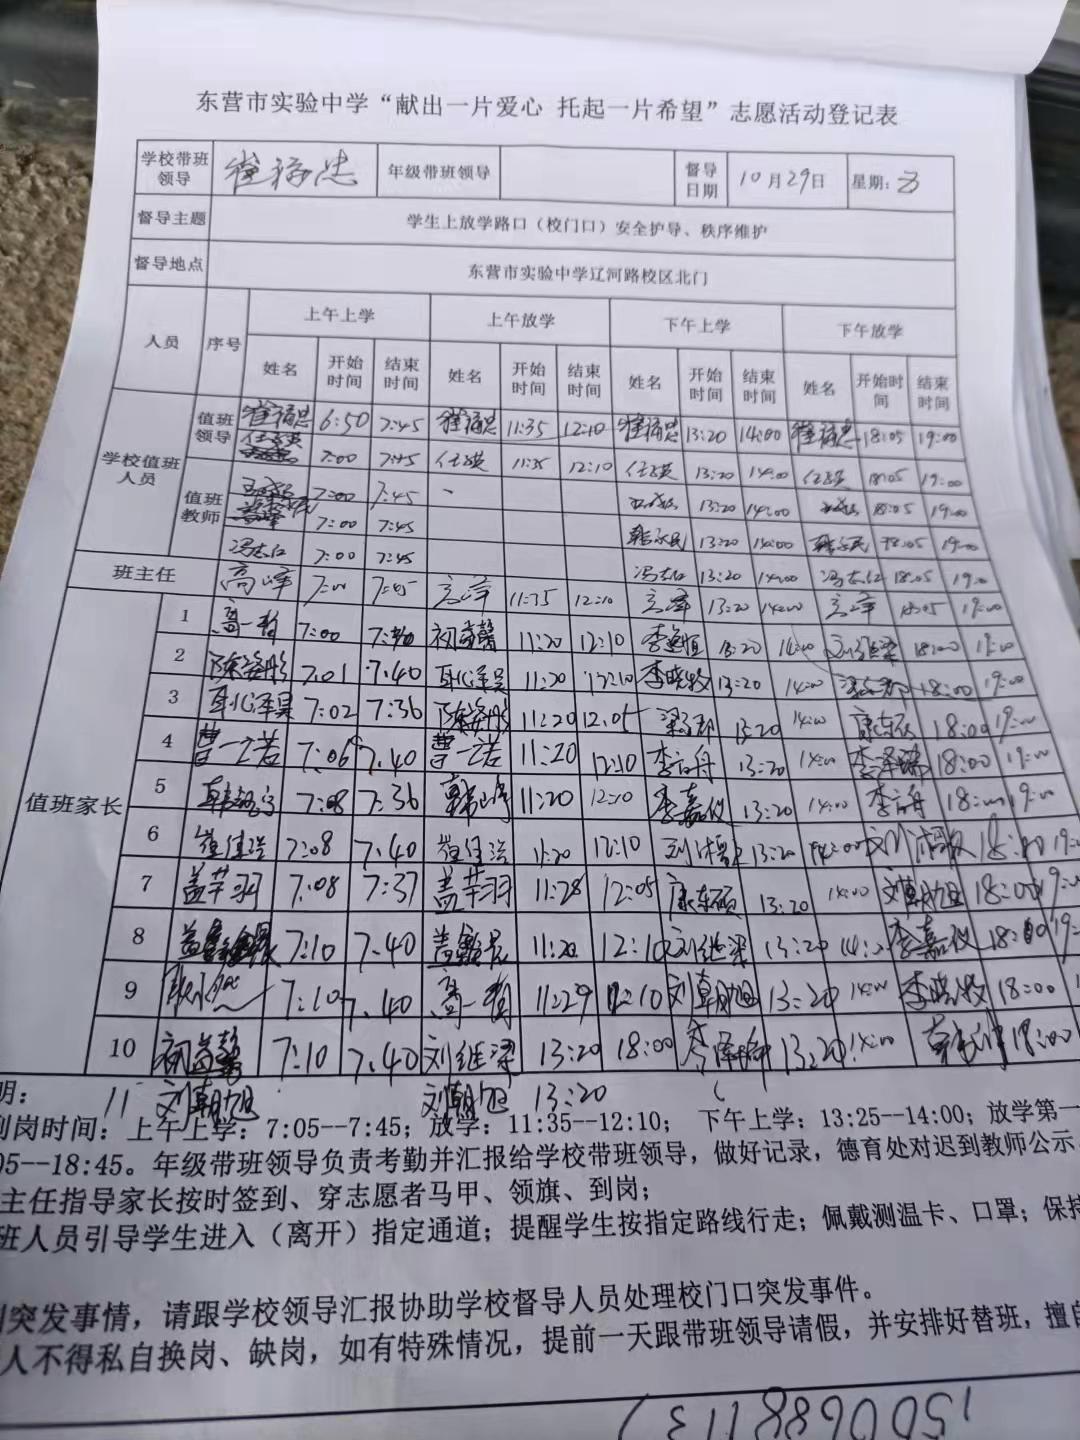 东营市实验中学“献出一片爱心 托起一片希望”志愿活动登记表
学校带班领导 崔福忠 年级带班领导 督导日期 10月29日 星期:五
督导主题 学生上放学路口（校门口）安全护导、秩序维护
督导地点 东营市实验中学辽河路校区北门
人员 序号 上午上学 上午放学 下午上学 下午放学
姓名 开始时间 结束时间 姓名 开始时间 结束时间 姓名 开始时间 结束时间 姓名 开始时间 结束时间
学校值班人员 值班领导 崔福忠 6:50 7:45 崔福忠 11:35 12:10 崔福忠 13:20 14:00 崔福忠 18:05 19:00
7:00 7:45 11:35 12:10 13:20 14:00 18:05 19:00
值班教师 7:00 7:45 13:20 14:00 18:05 19:00
7:00 7:45 韩永民 13:20 14:00 韩永民 18:05 19:00
冯志红 7:00 7:45 冯志红 13:20 14:00 冯志红 18:05 19:00
班主任 高峰 7:00 7:45 高峰 11:35 12:10 高峰 13:20 14:00 高峰 18:05 19:00
值班家长 1 高一智 7:00 7:40 初茗馨 11:20 12:10 13:20 14:00 刘继梁 18:00 19:00
2 陈姿彤 7:01 7.40 耿泽昊 11:20 12:10 李晓牧 13:20 14:00 18:00 19:00
3 耿泽昊 7:02 7:36 陈姿彤 11:20 12:05 13:20 14:00 康东硕 18:00 19:00
4 曹一诺 7:06 7.40 曹一诺 11:20 12:10 李言舟 13:20 14:00 李泽瑞 18:00 19:00
5 7:08 7:36 11:20 12:10 李嘉仪 13:20 14:00 李言舟 18:00 19:00
6 崔佳浩 7:08 7.40 崔佳浩 11:20 12:10 13:20 14:00 18:00 19:00
7 盖芊羽 7:08 7:37 盖芊羽 11:28 12:05 康东硕 13:20 14:00 刘朝旭 18:00 19:00
8 7:10 7.40 11:20 12:10 刘继梁 13:20 李嘉仪 18:00 19:
9 7:10 7.40 高一智 11:29 12:10 刘朝旭 13:20 14:00 李晓牧 18:00
10 初茗馨 7:10 7.40 刘继梁 13:20 18:00 13:20 14:00 18:00
明: 11 刘朝旭 刘朝旭 13:20
到岗时间：上午上学：7:05--7:45；放学：11:35--12:10； 下午上学：13:25--14:00；放学第一
05--18:45。年级带班领导负责考勤并汇报给学校带班领导，做好记录，德育处对迟到教师公示
主任指导家长按时签到、穿志愿者马甲、领旗、到岗；
班人员引导学生进入（离开）指定通道；提醒学生按指定路线行走；佩戴测温卡、口罩；保持
突发事情，请跟学校领导汇报协助学校督导人员处理校门口突发事件。
人不得私自换岗、缺岗，如有特殊情况，提前一天跟带班领导请假，并安排好替班，擅自